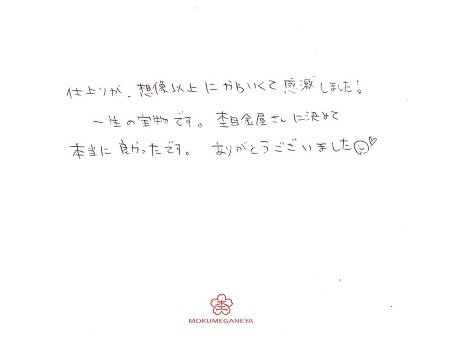 仕上りが、想像以上にかわいくて感激しました!
一生の宝物です。杢目金屋さんに決めて
本当に良かったです。ありがとうございました
杢
MOKUMEGANEYA